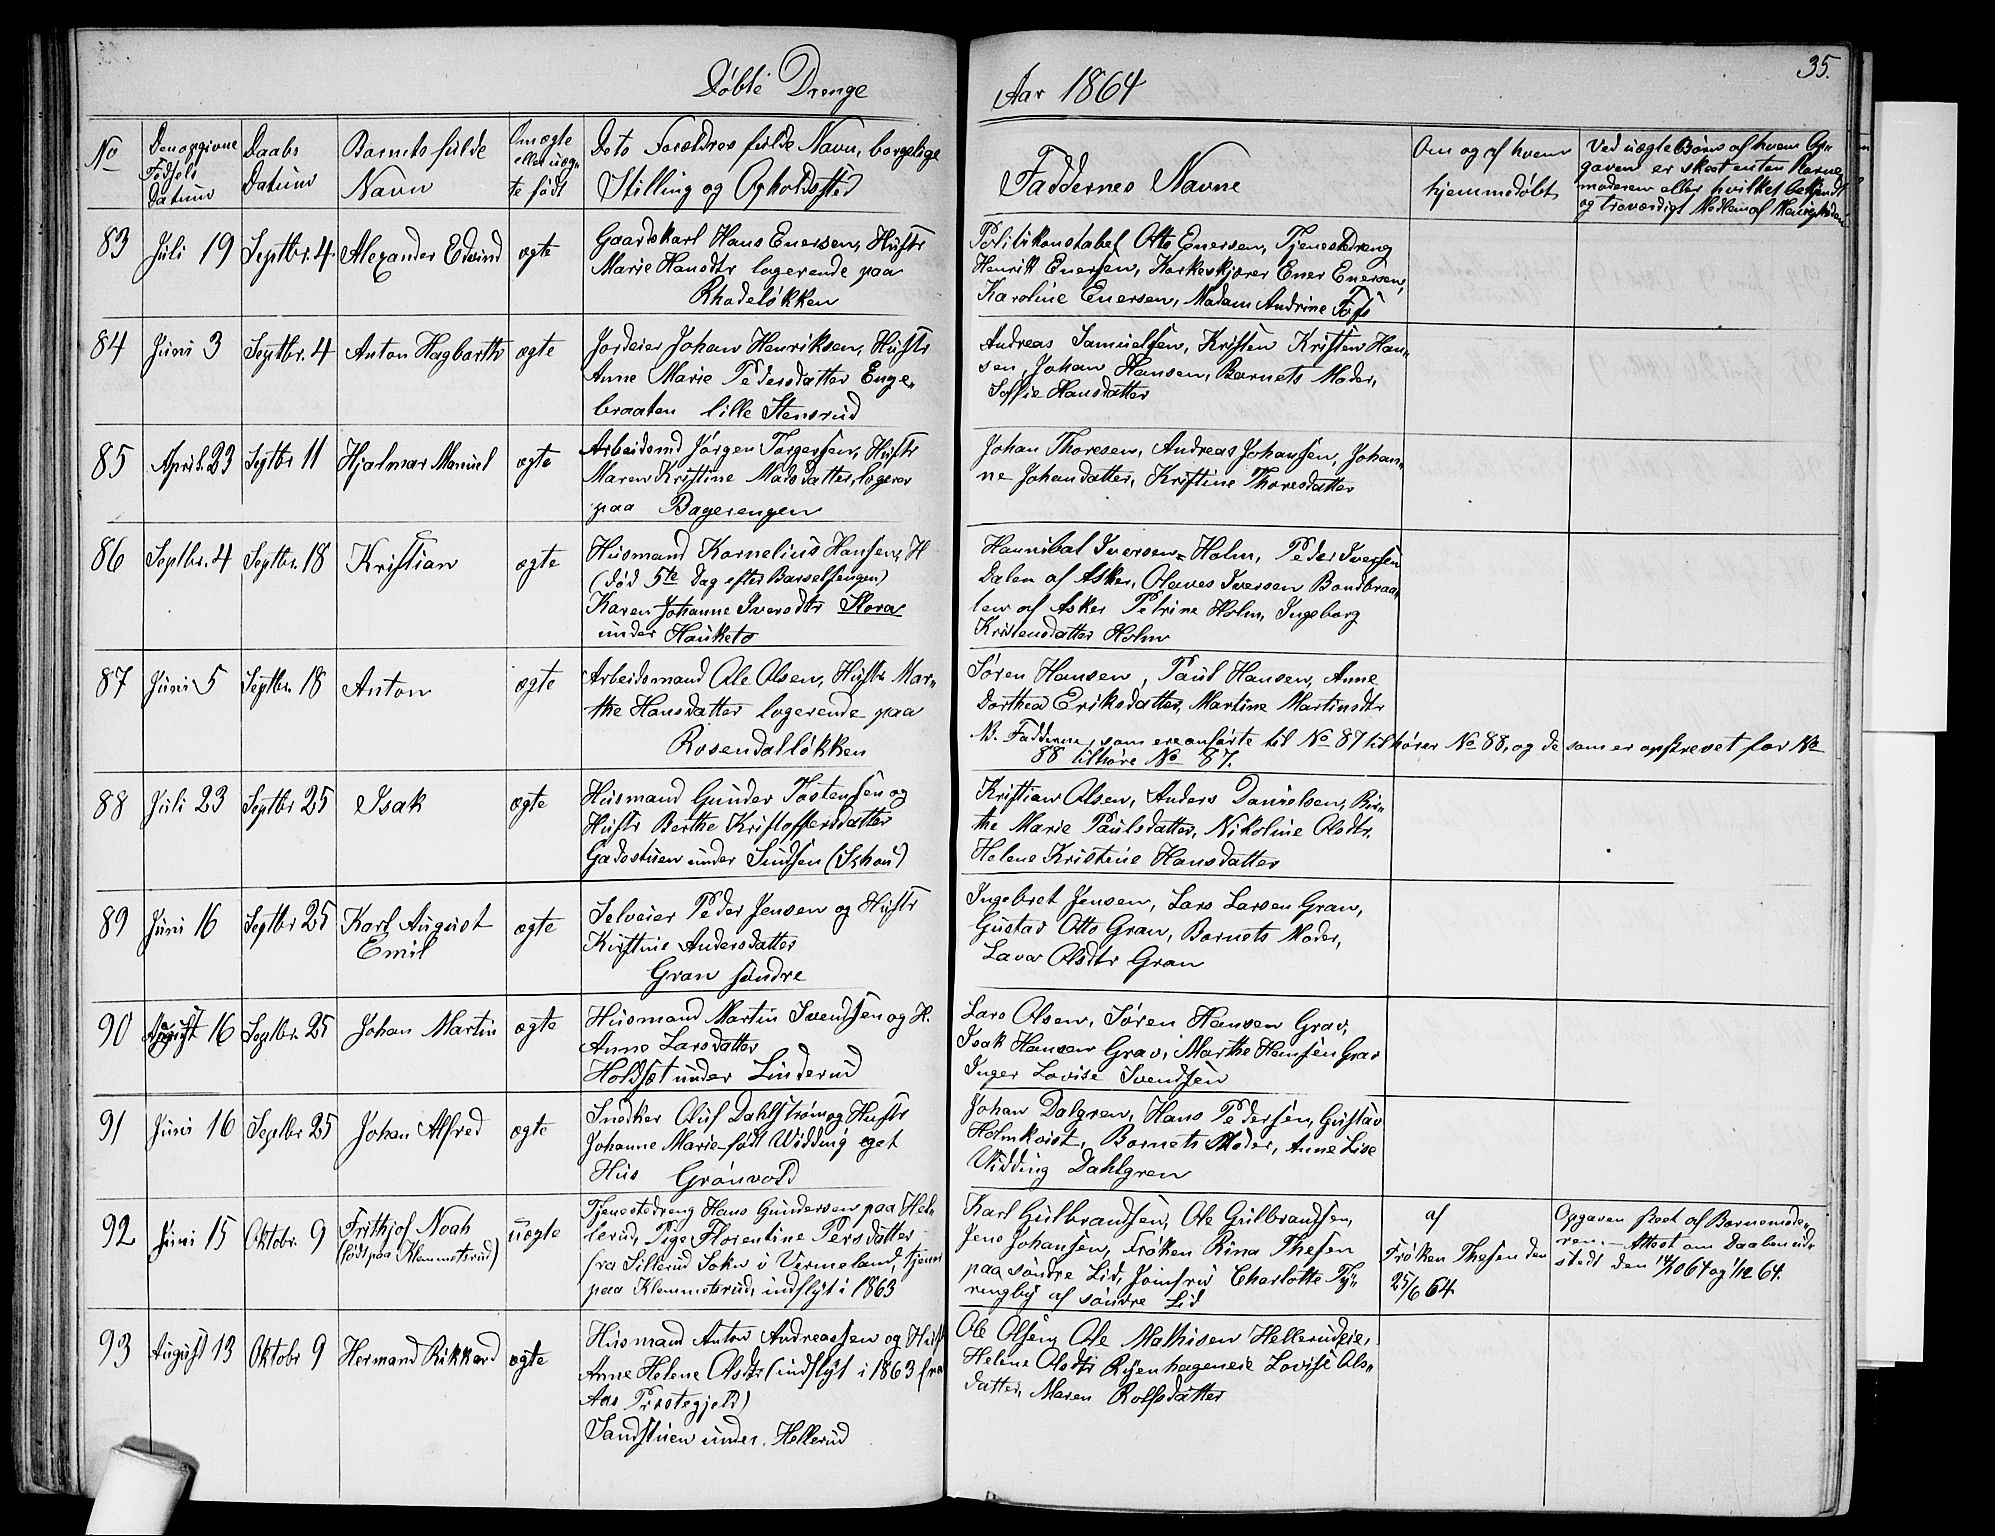 Døbte Drenge
Aar 1864
35.
No
Den opgivne
Fødsels
Datum
Daabs
Datum
Barnets fulde
Navn
Om ægte
eller uæg-
te født
Dets Forældres fulde Navn, borgelige
Stilling og Opholdssted
Faddernes Navne
Om og af hvem
hjemmedøbt
Ved uægte Børn af hvem Op-
gaven er skeet enten Barne
moderen eller hvilket bekjendt
og troværdigt Medlem af Menigheden
83
Juli 19
Septbr. 4.
Alexander Edvind
ægte
Gaardskarl Hans Enersen, Hustr
Marie Hansdtr logerende paa
Rhodeløkken
Politikonstabel Otto Enersen, Tjenestedreng
Henrik Enersen, Korkeskjærer Ener Enersen,
Karoline Enersen, Madam Andrine Foss
84
Juni 3
Septbr. 4
Anton Hagbarth
ægte
Jordeier Johan Henriksen, Hustr
Anne Marie Pedersdatter Enge-
braaten lille Stensrud
Andreas Samuelsen, Kristen Kristen Han-
sen, Johan Hansen, Barnets Moder,
Soffie Hansdatter
85
April 23
Septbr 11
Hjalmar Manuel
ægte
Arbeidsmd Jørgen Torgersen, Hustr
Maren Kristine Madsdatter, logerer
paa Bagerengen
Johan Thoresen, Andreas Johansen, Johan-
ne Johansdatter, Kristine Thoresdatter
86
Septbr. 4
Septbr. 18
Kristian
ægte
Husmand Kornelius Hansen, H
(død 5te Dag efter Barselsengen)
Karen Johanne Iversdtr Flora
under Hauketo
Hannibal Iversen-Holm, Peder Iversen
Dalen af Asker, Olaves Iversen Bondbraa-
ten af Asker Petrine Holm, Ingeborg
Kristensdatter Holm
87
Juni 5
Septbr. 18
Anton
ægte
Arbeidsmand Ole Olsen, Hustr Mar-
the Hansdatter logerende paa
Rosendalløkken
Søren Hansen, Paul Hansen, Anne
Dorthea Eriksdatter, Martine Martinsdtr
N. Fadderne, som ere anførte til No 87 tilhører No 88, og de som er opskrevet for No
88 tilhøre No 87.
88
Juli 23
Septbr 25
Isak
ægte
Husmand Gunder Tostensen og
Hustr Berthe Kristoffersdatter
Gadestuen under Sindsen (Schou)
Kristian Olsen, Anders Danielsen, Bir-
the Marie Paulsdatter, Nikoline Olsdtr.
Helene Kristine Hansdatter
89
Juni 16
Septbr 25
Karl August
Emil
ægte
Selveier Peder Jensen og Hustr
Kirstine Andersdatter
Gran søndre
Ingebret Jensen, Lars Larsen Gran,
Gustav Otto Gran, Barnets Moder,
Lava Olsdtr Gran
90
August 16
Septbr. 25
Johan Martin
ægte
Husmand Martin Svendsen og H.
Anne Larsdatter
Holdset under Linderud
Lars Olsen, Søren Hansen Grav,
Isak Hansen Grav, Marthe Hansen Grav
Inger Lovise Svendsen
91
Juni 16
Septbr 25
Johan Alfred
ægte
Snedker Oluf Dahlstrøm og Hustr
Johanne Marie født Widding eget
Hus Grønvold
Johan Dalgren, Hans Pedersen, Gustav
Holmkvist, Barnets Moder, Anne Lise
Widding Dahlgren
92
Juni 15
Oktobr. 9
Frithjof Noah
(født paa Klemmetsrud)
uægte
Tjenestedreng Hans Gundersen paa Hel-
lerud, Pige Florentine Persdatter
fra Sillerud Sokn i Vermeland, tjener
paa Klemmetsrud, indflyt i 1863
Karl Gulbrandsen, Ole Gulbrandsen,
Jens Johansen, Frøken Rina Thesen
paa søndre Lid, Jomfru Charlotte Ty-
ringby af søndre Lid
af
Frøken Thesen den
25/6 64
Opgaven skeet af Barnemode-
ren. - Attest om Daaben ud-
stedt den 14/10 64 og 1/12 64.
93
August 13
Oktobr 9
Hermand Rikkard
ægte
Husmand Anton Andreassen og Hust
Anne Helene Olsdtr (indflyt i 1863 fra
Aas Præstegjeld)
Sandstuen under Hellerud
Ole Olsen, Ole Mathisen Hellerudeie,
Helene Olsdtr Ryenhageneie Lovise Ols-
datter, Maren Rolfsdatter